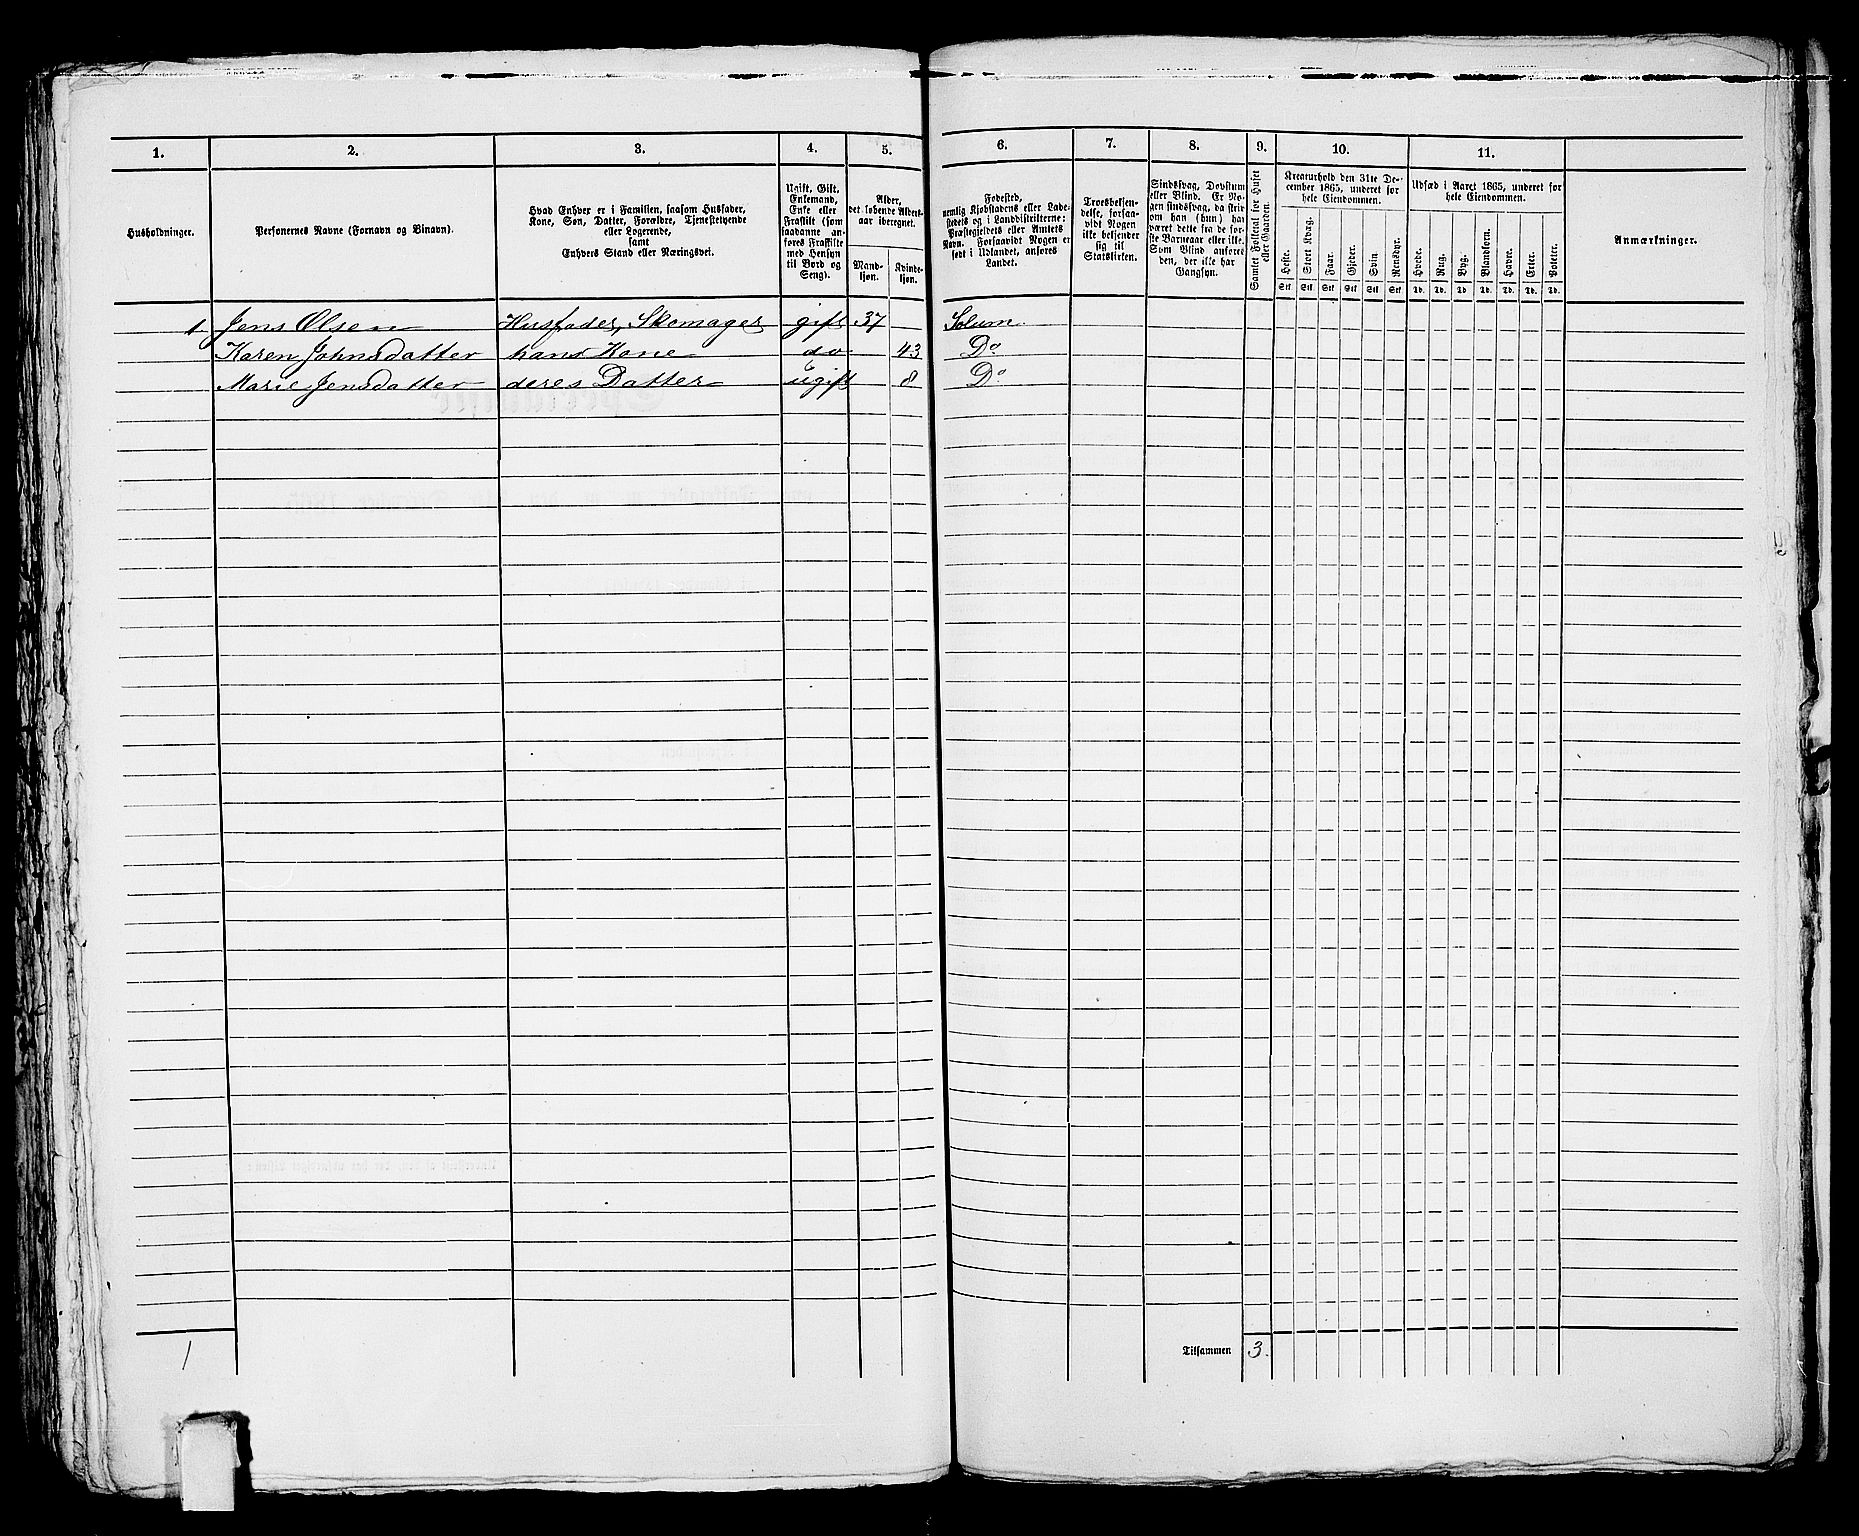 1. 2. 3. 4. 5. 6. 7. 8. 9. 10. 11.
Husholdninger.
Personernes Navne (Fornavn og Binavn).
Hvad Enhver er i Familien, saasom Husfader,
Kone, Søn, Datter, Forældre, Tjenestetyende
eller Logerende,
samt
Enhvers Stand eller Næringsvei.
Ugift, Gift,
Enkemand,
Enke eller
Fraskilt (som
saadanne an-
føres Fraskilte
med Hensyn
til Bord og
Seng).
Alder,
det løbende Alders-
aar iberegnet.
Mand-
kjøn.
Kvinde-
kjøn.
Fødested,
nemlig Kjøbstadens eller Lade-
stedets og i Landdistrikterne:
Præstegjeldets eller Amtets
Navn. Forsaavidt Nogen er
født i Udlandet, anføres
Landet.
Troesbekjen-
delse, forsaa-
vidt Nogen
ikke bekjender
sig til
Statskirken.
Sindssvag, Døvstum
eller Blind. Er No-
gen sindssvag, da skriv
om han (hun) har
været dette fra de før-
ste Barneaar eller ikke.
Som Blind anføres
den, der ikke har
Gangsyn.
Samlet Folketal for Huset
eller Gaarden.
Kreaturhold den 31te De-
cember 1865, underet for
hele Eiendommen.
Heste. Stort Kvæg. Faar. Gjeder. Svin. Rensdyr.
Stk Stk Stk Stk Stk Stk
Udsæd i Aaret 1865, underet for
hele Eiendommen.
Hvede. Rug. Byg. Blandkorn. Havre. Erter. Poteter.
Td. Td. Td Td. Td. Td. Td.
Anmærkninger.
1 Jens Olsen Husfader, Skomager gift 37 Solum
Karen Johnsdatter hans Kone do 43 Do
Marie Jensdatter deres Datter ugift 8 Do
1 Tilsammen 3.